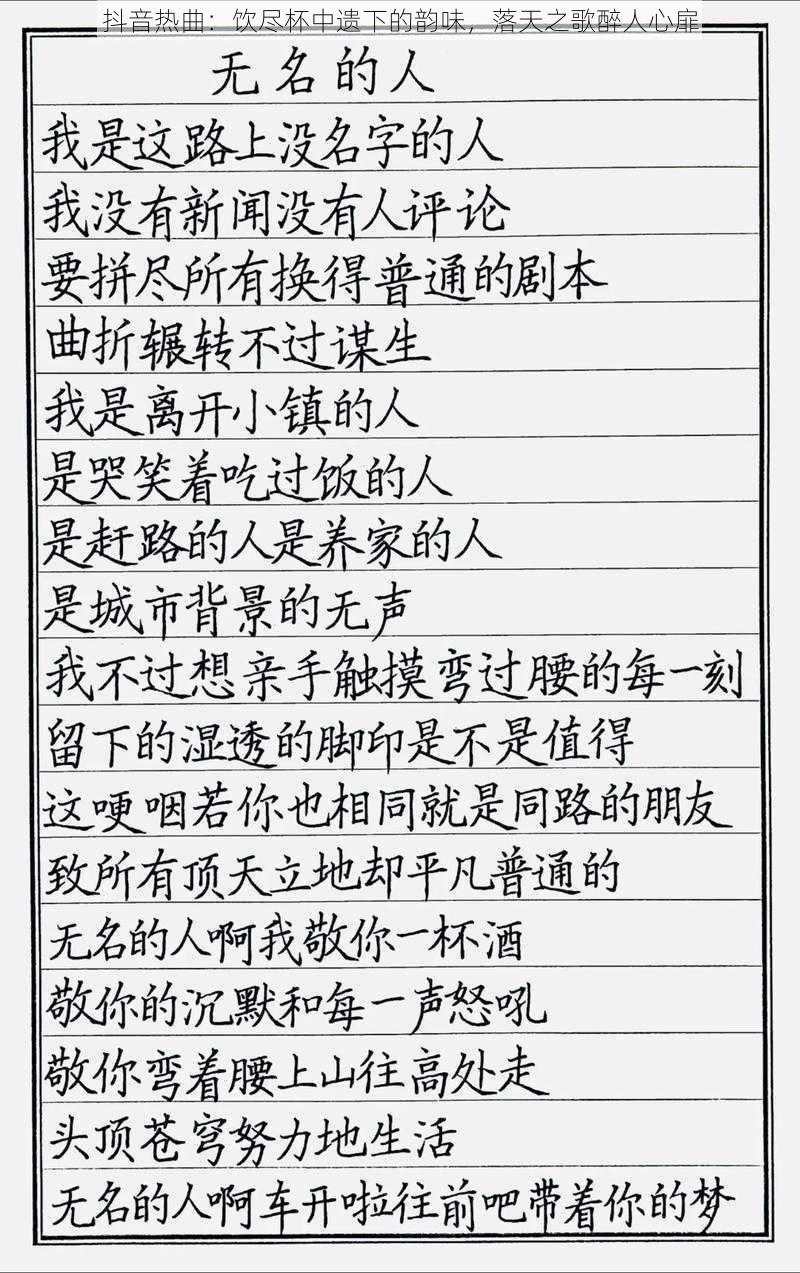 抖音热曲：饮尽杯中遗下的韵味，落天之歌醉人心扉
无名的人
我是这路上没名字的人
我没有新闻没有人评论
要拼尽所有换得普通的剧本
曲折辗转不过谋生
我是离开小镇的人
是哭笑着吃过饭的人
是赶路的人是养家的人
是城市背景的无声
我不过想亲手触摸弯过腰的每一刻
留下的湿透的脚印是不是值得
这哽咽若你也相同就是同路的朋友
致所有顶天立地却平凡普通的
无名的人啊我敬你一杯酒
敬你的沉默和每一声怒吼
敬你弯着腰上山往高处走
头顶苍穹努力地生活
无名的人啊车开啦往前吧带着你的梦